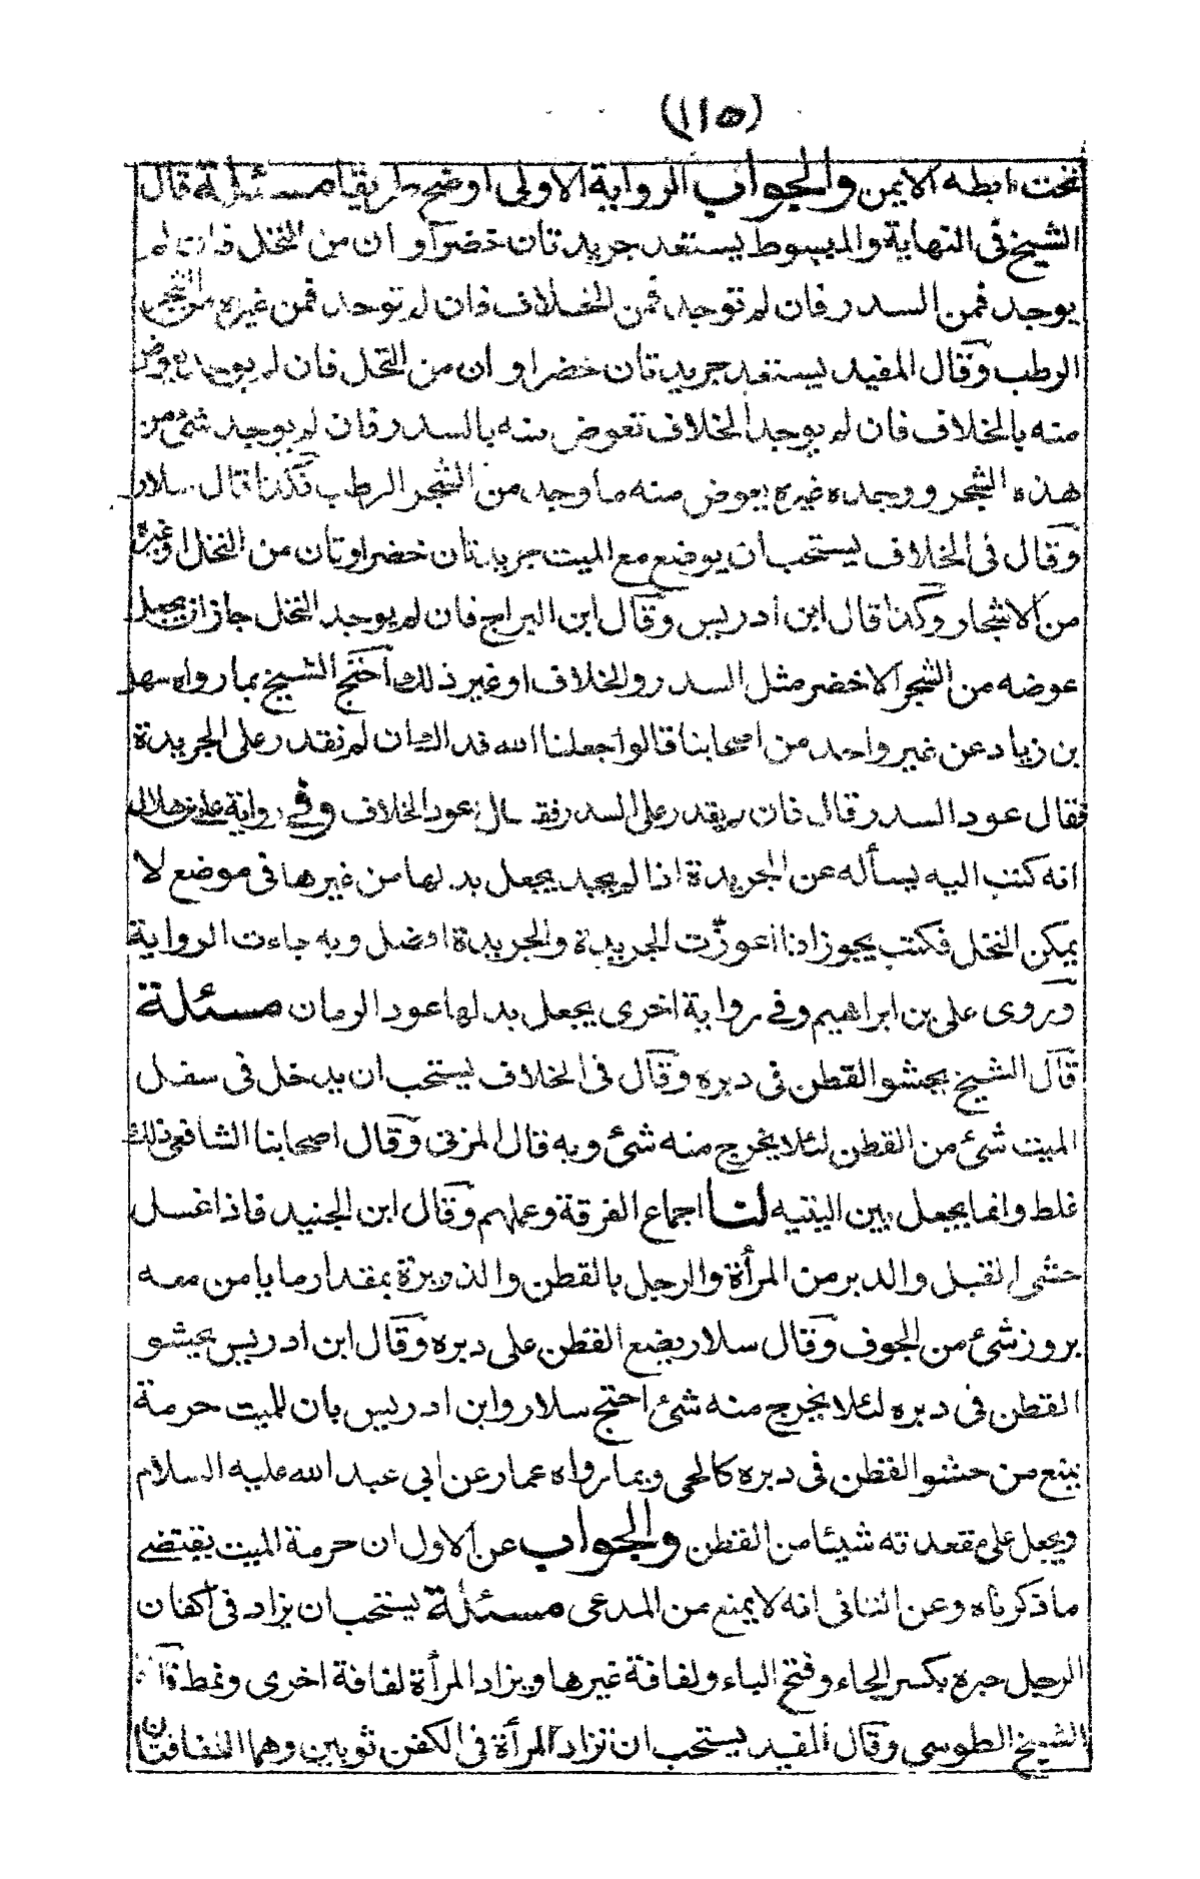 (١١٥)
تحت ابطه الايمن والجواب الرواية الاولى اوضح طريقا مسئلة قال
الشيخ فى النهاية والمبسوط يستعد جريدتان خضراوان من النخل فان لم
يوجد فمن السدر فان لم توجد فمن الخلاف فان لم توجد فمن غيره من الشجر
الرطب وقال المفيد يستعد جريدتان خضراوان من النخل فان لم يوجد يعوض
منه بالخلاف فان لم يوجد الخلاف تعوض منه بالسدر فان لم يوجد شئ من
هذه الشجر ووجد غيره يعوض منه ما وجد من الشجر الرطب وكذا قال سلار
وقال فى الخلاف يستحب ان يوضع مع الميت جريدتان خضراوتان من النخل او غيره
من الاشجار وكذا قال ابن ادريس وقال ابن البراج فان لم يوجد النخل جاز ان يجعل
عوضه من الشجر الاخضر مثل السدر والخلاف او غير ذلك احتج الشيخ بما رواه سهل
بن زياد عن غير واحد من اصحابنا قالوا جعلنا الله فداك ان لم نقدر على الجريدة
فقال عود السدر قال فان لم يقدر على السدر فقال عود الخلاف وفي رواية على بن بلال
انه كتب اليه يسأله عن الجريدة اذا لم يجد يجعل بدلها من غيرها فى موضع لا
يمكن النخل فكتب يجوز اذا اعوزت الجريدة والجريدة افضل وبه جاءت الرواية
وروى على بن ابراهيم وفي رواية اخرى يجعل بدلها عود الرمان مسئلة
قال الشيخ يحشو القطن فى دبره وقال فى الخلاف يستحب ان يدخل فى سفل
الميت شئ من القطن لئلا يخرج منه شئ وبه قال المزنى وقال اصحابنا الشافعى ذلك
غلط وانما يجعل بين اليتيه لنا اجماع الفرقة وعملهم وقال ابن الجنيد فاذا غسل
حشى القبل والدبر من المرأة والرجل بالقطن والذويرة بمقدار ما يامن معه
بروز شئ من الجوف وقال سلار يضع القطن على دبره وقال ابن ادريس يحشو
القطن فى دبره لئلا يخرج منه شئ احتج سلار وابن ادريس بان للميت حرمة
يمنع من حشو القطن فى دبره كالحى وبما رواه عمار عن ابي عبد الله عليه السلام
ويجعل على مقعدته شيئا من القطن والجواب عن الاول ان حرمة الميت يقتضى
ما ذكرناه وعن الثانى انه لا يمنع من المدعى مسئلة يستحب ان يزاد فى اكفان
الرجل حبره بكسر الحاء وفتح الباء ولفافة غيرها ويزاد المرأة لفافة اخرى ونمط قال
الشيخ الطوسى وقال المفيد يستحب ان تزاد المرأة فى الكفن ثوبين وهما اللفافتان